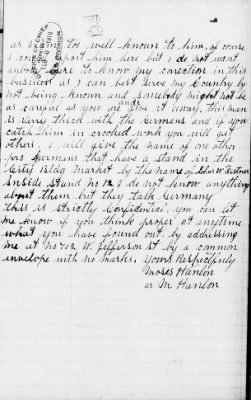 as I too well known to him, of course
I report him here but I do not want
anbody here to know my conection in this
business as I can best serve my Country by
not being known and Somebody might not be
as careful as you and give it away, this man
is very thick with the Germans and if you
catch him in crooked work you will get
others. I will give the name of one other
pro Germans that have a stand in the
City Bldg Market by the name of John W.
inside stand no 12 I do not know anything
about them but they talk Germany
this is strictly Confidential, you can let
me know if you think proper at anytime
what you have found out by addressing
me at no 702 W. Jefferson St by a common
envelope with no marks. Yours Respectfuly
Moses Hanlon
or M Hanlon